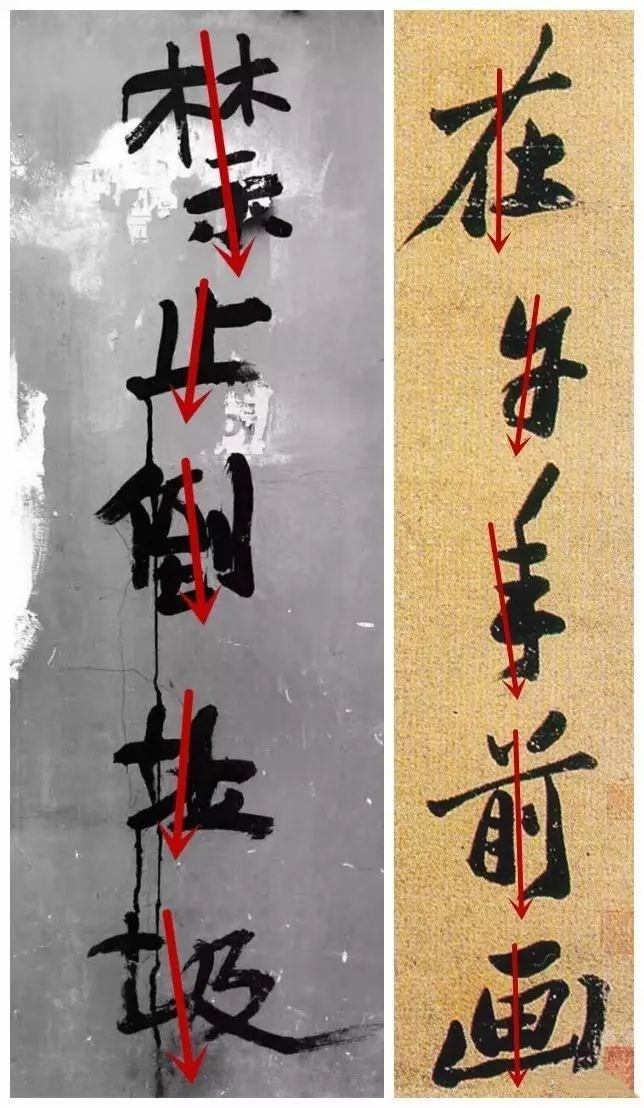 禁止倒垃圾
在年前画